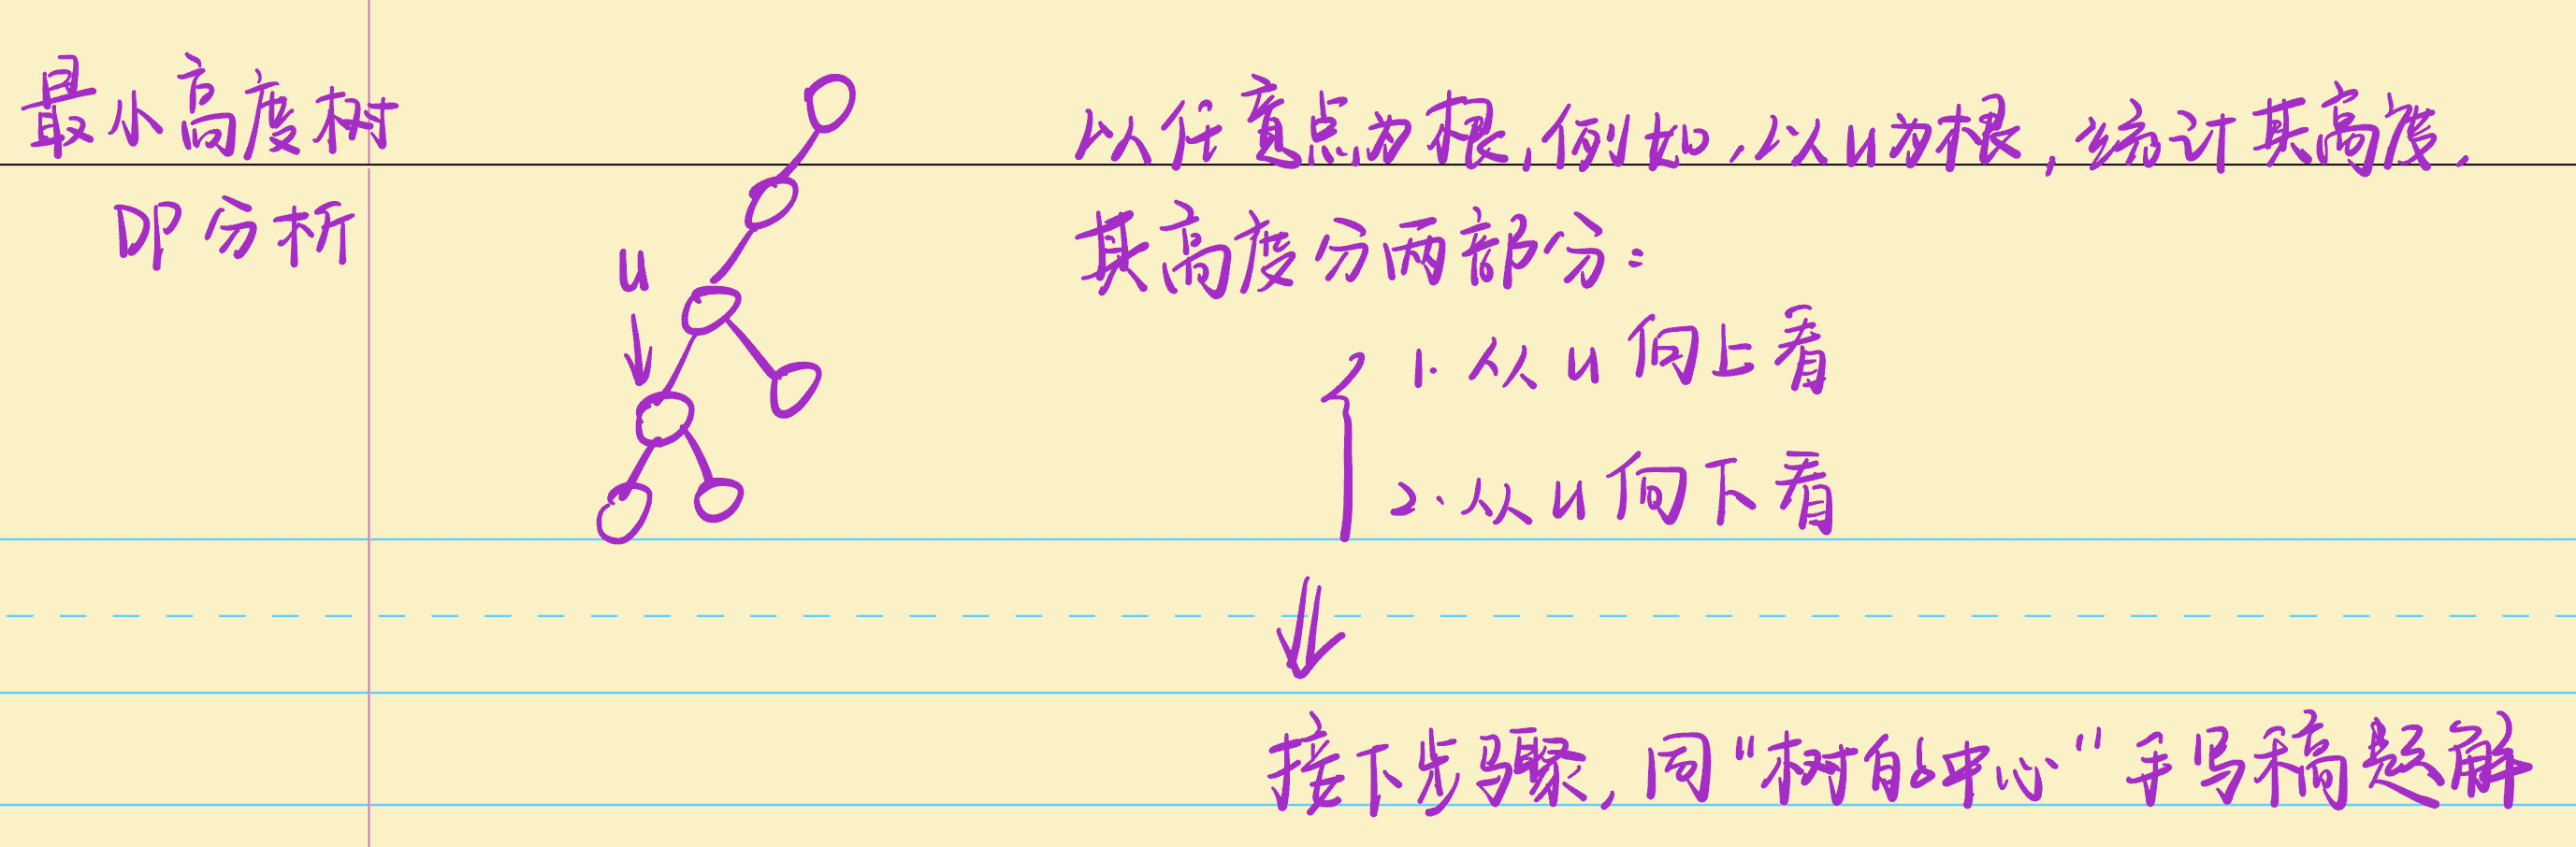 最小高度树
DP分析
u
以任意点为根,例如,以u为根,统计其高度,
其高度分两部分:
1. 从u向上看
2. 从u向下看
接下步骤,同"树的中心"手写稿题解